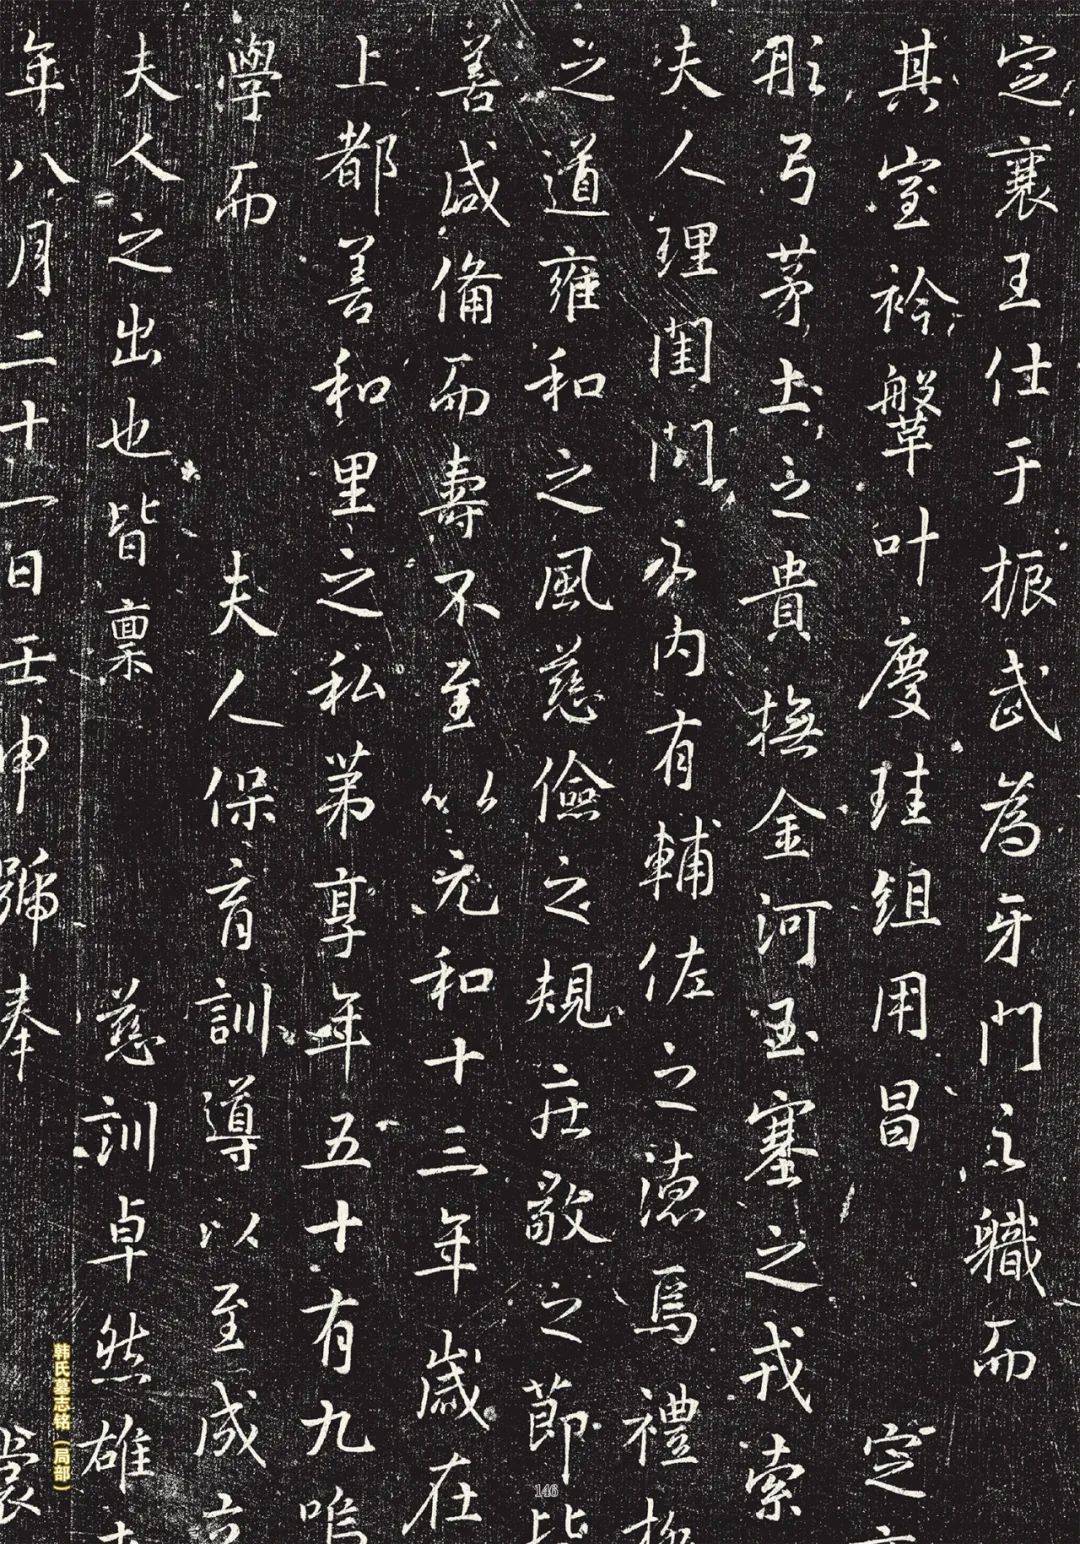 定襄王仕于振武為牙門之職而
其室衿鞶叶慶珪組用昌 定
彤弓茅土之貴撫金河玉塞之戎索
夫人理閨門之內有輔佐之德焉禮
之道雍和之風慈儉之規莊敬之節皆
善咸備而壽不至以元和十三年歲在
上都善和里之私第享年五十有九嗚
學而 夫人保育訓導以至成立
夫人之出也皆稟 慈訓卓然雄
年八月二十一日壬申號奉 裳
韩氏墓志铭（局部）
146